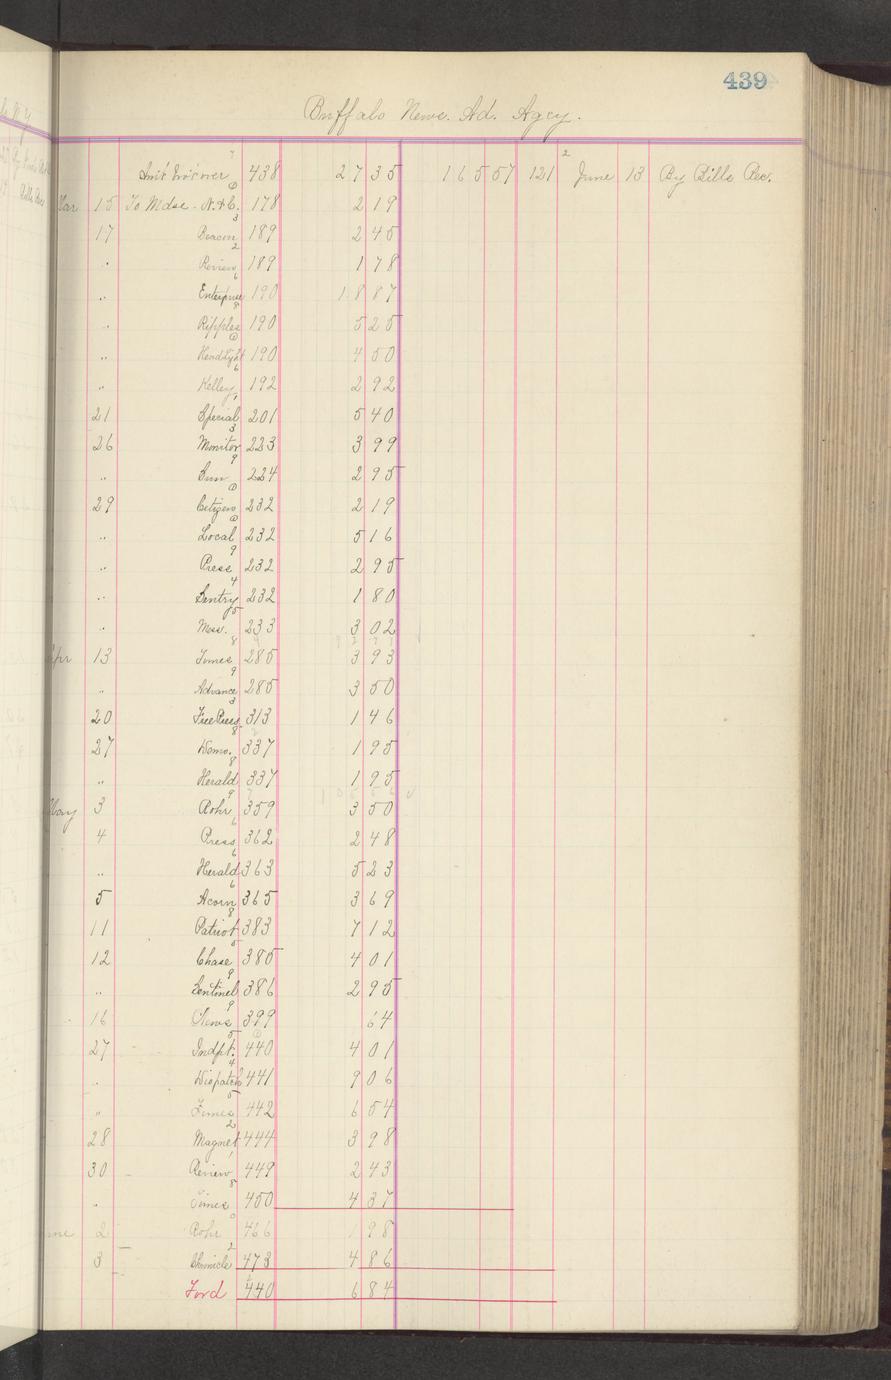 439
Buffalo News. Ad. Agcy.
438 27 35 165 57 121 2 June 13 By Bills Rec.
Mar 15 To Mdse - N.&C. 178 2 19
17 Beacon 189 2 45
" Review 189 1 78
" Enterprise 190 18 87
" Ripples 190 5 25
" Headlight 190 4 50
" Kelley 192 2 92
21 Special 201 5 40
26 Monitor 223 3 99
" Sun 224 2 95
29 Citizen 232 2 19
" Local 232 5 16
" Press 232 2 95
" Sentry 232 1 80
" Mess. 233 3 02
Apr 13 Times 285 3 93
" Advance 285 3 50
20 Free Press 313 1 46
27 Demo. 337 1 95
" Herald 337 1 95
May 3 Rohr 359 3 50
4 Press 362 2 48
" Herald 363 5 23
5 Acorn 365 3 69
11 Patriot 383 7 12
12 Chase 385 4 01
" Sentinel 386 2 95
16 News 399 64
27 Indpt. 440 4 01
" Dispatch 441 9 06
" Times 442 6 54
28 Magnet 444 3 98
30 Review 449 2 43
" Times 450 4 37
June 2 Rohr 466 1 98
3 Chronicle 473 4 86
Ford 440 6 84